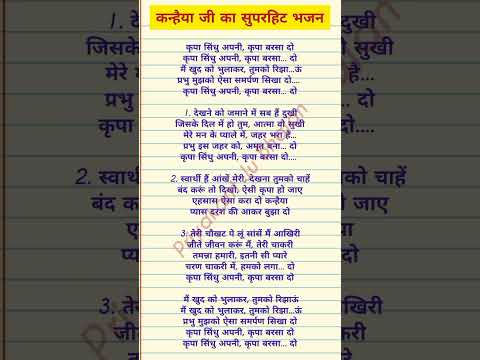 कन्हैया जी का सुपरहिट भजन
कृपा सिंधु अपनी, कृपा बरसा दो
कृपा सिंधु अपनी, कृपा बरसा... दो
मैं खुद को भुलाकर, तुमको रिझा...ऊं
प्रभु मुझको ऐसा समर्पण सिखा दो....
कृपा सिंधु अपनी, कृपा बरसा... दो
1. देखने को जमाने में सब हैं दुखी
जिसके दिल में हो तुम, आत्मा वो सुखी
मेरे मन के प्याले में, जहर भरा है...
प्रभु इस जहर को, अमृत बना... दो
कृपा सिंधु अपनी, कृपा बरसा दो....
2. स्वार्थी हैं आंखें मेरी, देखना तुमको चाहें
बंद करूं तो दिखो, ऐसी कृपा हो जाए
एहसास ऐसा करा दो कन्हैया
प्यास दरश की आकर बुझा दो
3. तेरी चौखट पे लूं सांसें मैं आखिरी
जीते जीवन करूं मैं, तेरी चाकरी
तमन्ना हमारी, इतनी सी प्यारे
चरण चाकरी में, हमको लगा... दो
कृपा सिंधु अपनी, कृपा बरसा दो
मैं खुद को भुलाकर, तुमको रिझाऊं
मैं खुद को भुलाकर, तुमको रिझा...ऊं
प्रभु मुझको ऐसा समर्पण सिखा दो
कृपा सिंधु अपनी, कृपा बरसा दो
कृपा सिंधु अपनी, कृपा बरसा... दो